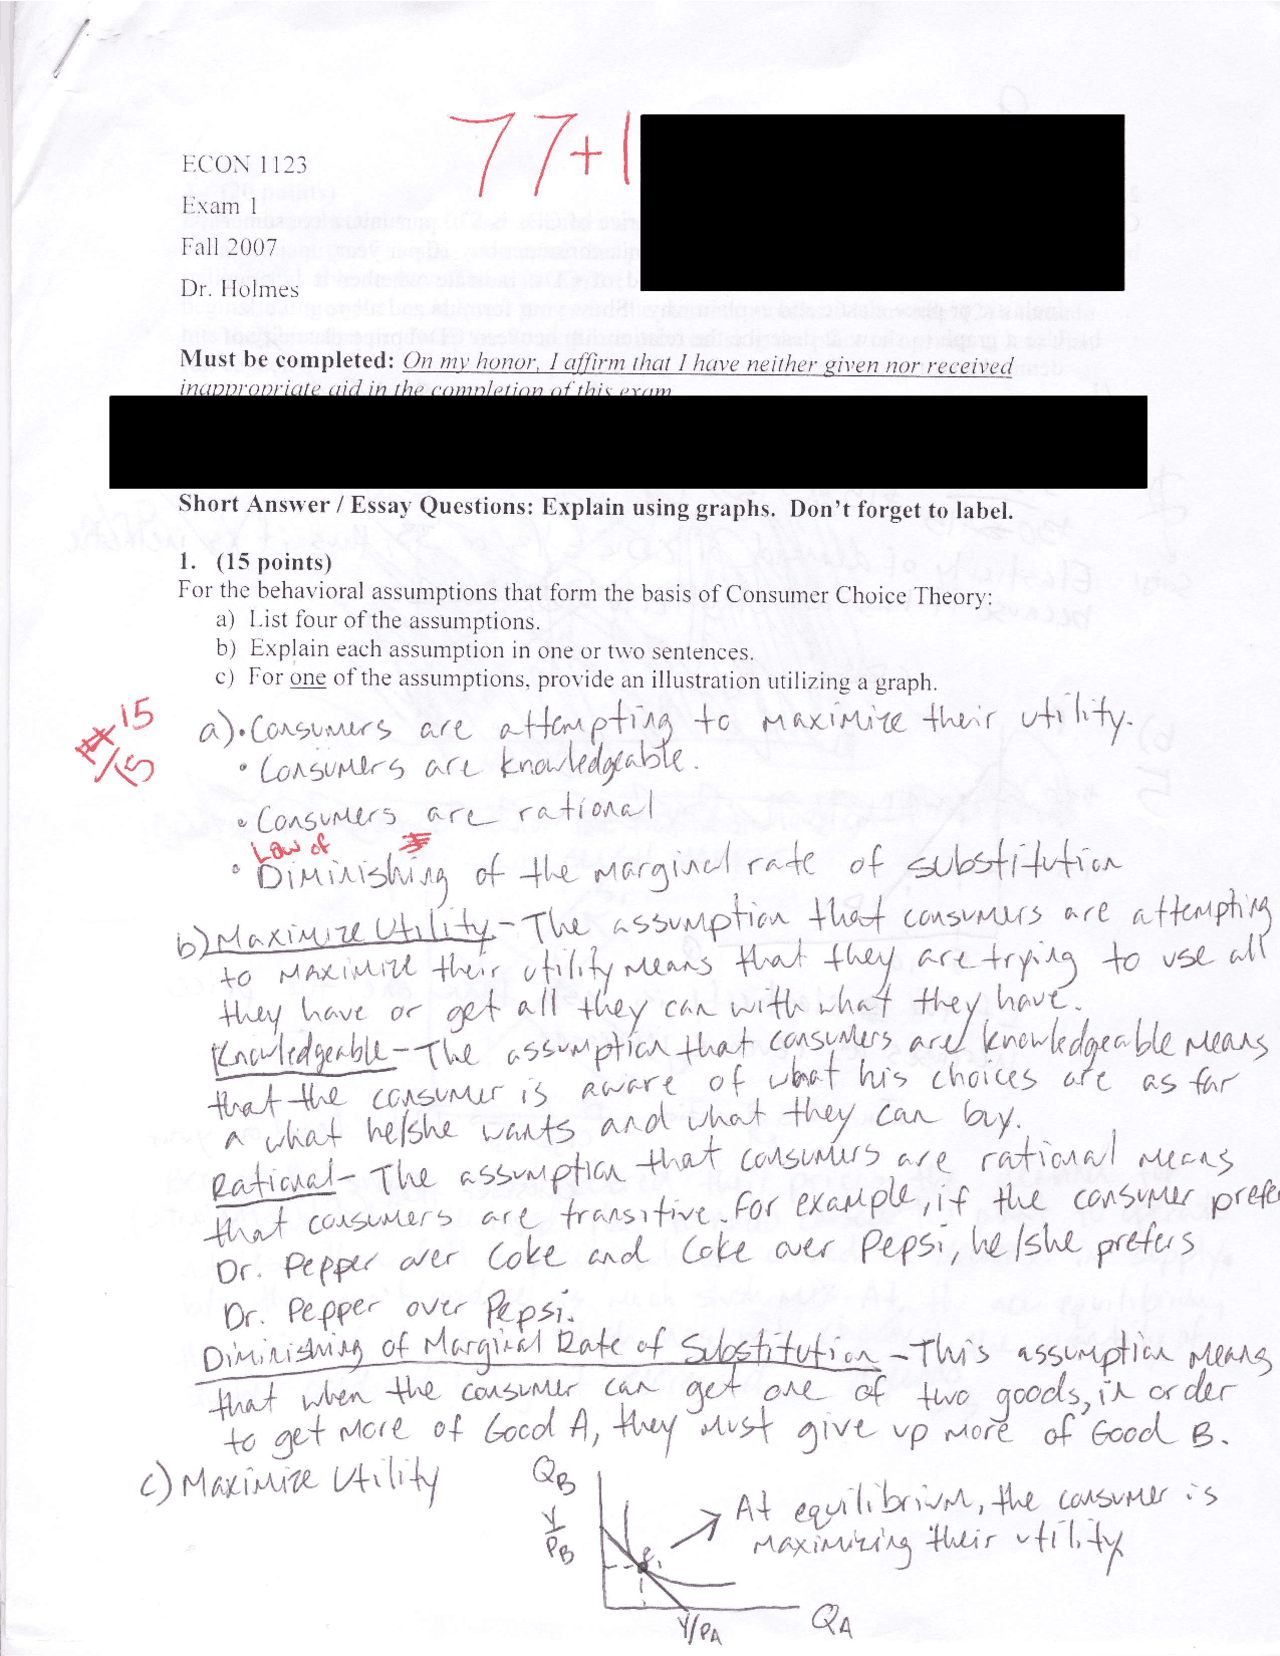 77+1
ECON 1123
Exam 1
Fall 2007
Dr. Holmes
Must be completed: On my honor, I affirm that I have neither given nor received
inappropriate aid in the completion of this exam
Short Answer / Essay Questions: Explain using graphs. Don't forget to label.
1. (15 points)
For the behavioral assumptions that form the basis of Consumer Choice Theory:
a) List four of the assumptions.
b) Explain each assumption in one or two sentences.
c) For one of the assumptions, provide an illustration utilizing a graph.
15
/15
a) • Consumers are attempting to maximize their utility.
• Consumers are knowledgeable.
• Consumers are rational
Law of
• Diminishing of the marginal rate of substitution
b) Maximize Utility - The assumption that consumers are attempting
to maximize their utility means that they are trying to use all
they have or get all they can with what they have.
Knowledgeable - The assumption that consumers are knowledgeable means
that the consumer is aware of what his choices are as far
a what he/she wants and what they can buy.
Rational - The assumption that consumers are rational means
that consumers are transitive. For example, if the consumer prefer
Dr. Pepper over Coke and Coke over Pepsi, he/she prefers
Dr. Pepper over Pepsi.
Diminishing of Marginal Rate of Substitution - This assumption means
that when the consumer can get one of two goods, in order
to get more of Good A, they must give up more of Good B.
c) Maximize Utility
QB
Y/PB
e
At equilibrium, the consumer is
maximizing their utility
Y/PA
QA